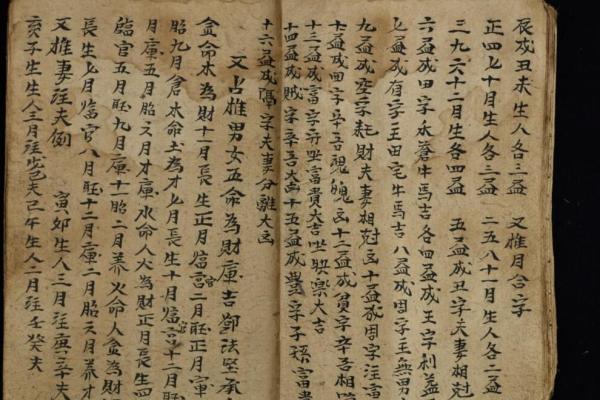 辰戌丑未生人各三益　又推月合字
正四七十月生人各三益　二五八十一月生人各二益
三九六十二月生各四益　五益成丑字夫妻相尅
六益成田字禾倉牛馬吉　各四益成王字利益
七益成有字王田宅牛馬吉　八益成周字主無男
九益成空字耗財夫妻相尅凶　十益成周字注富
十益成田字平吉　凶十二益成貧字辛苦相
十三益成富字所望富貴大吉　樂大吉
十四益成賊字辛苦大凶十五益成豊字子孫富貴
十六益成隔字夫妻分離大凶
又占推男女五命為財庫吉鄭法堅承
金命木為財十一月長生正月臨官二月旺正月庫
胎九月倉木命土為才七月長生十月臨官十二月旺
月庫五月胎六月才庫水命人火為財正月長生四
臨官五月旺九月庫十一胎二月养火命人金為財
長生七月臨官八月旺十二月庫二月胎三月养才
又推妻注夫例　寅卯生人三月注庚辛夫
亥子生生人三月注戊己夫巳午生人二月注壬癸夫